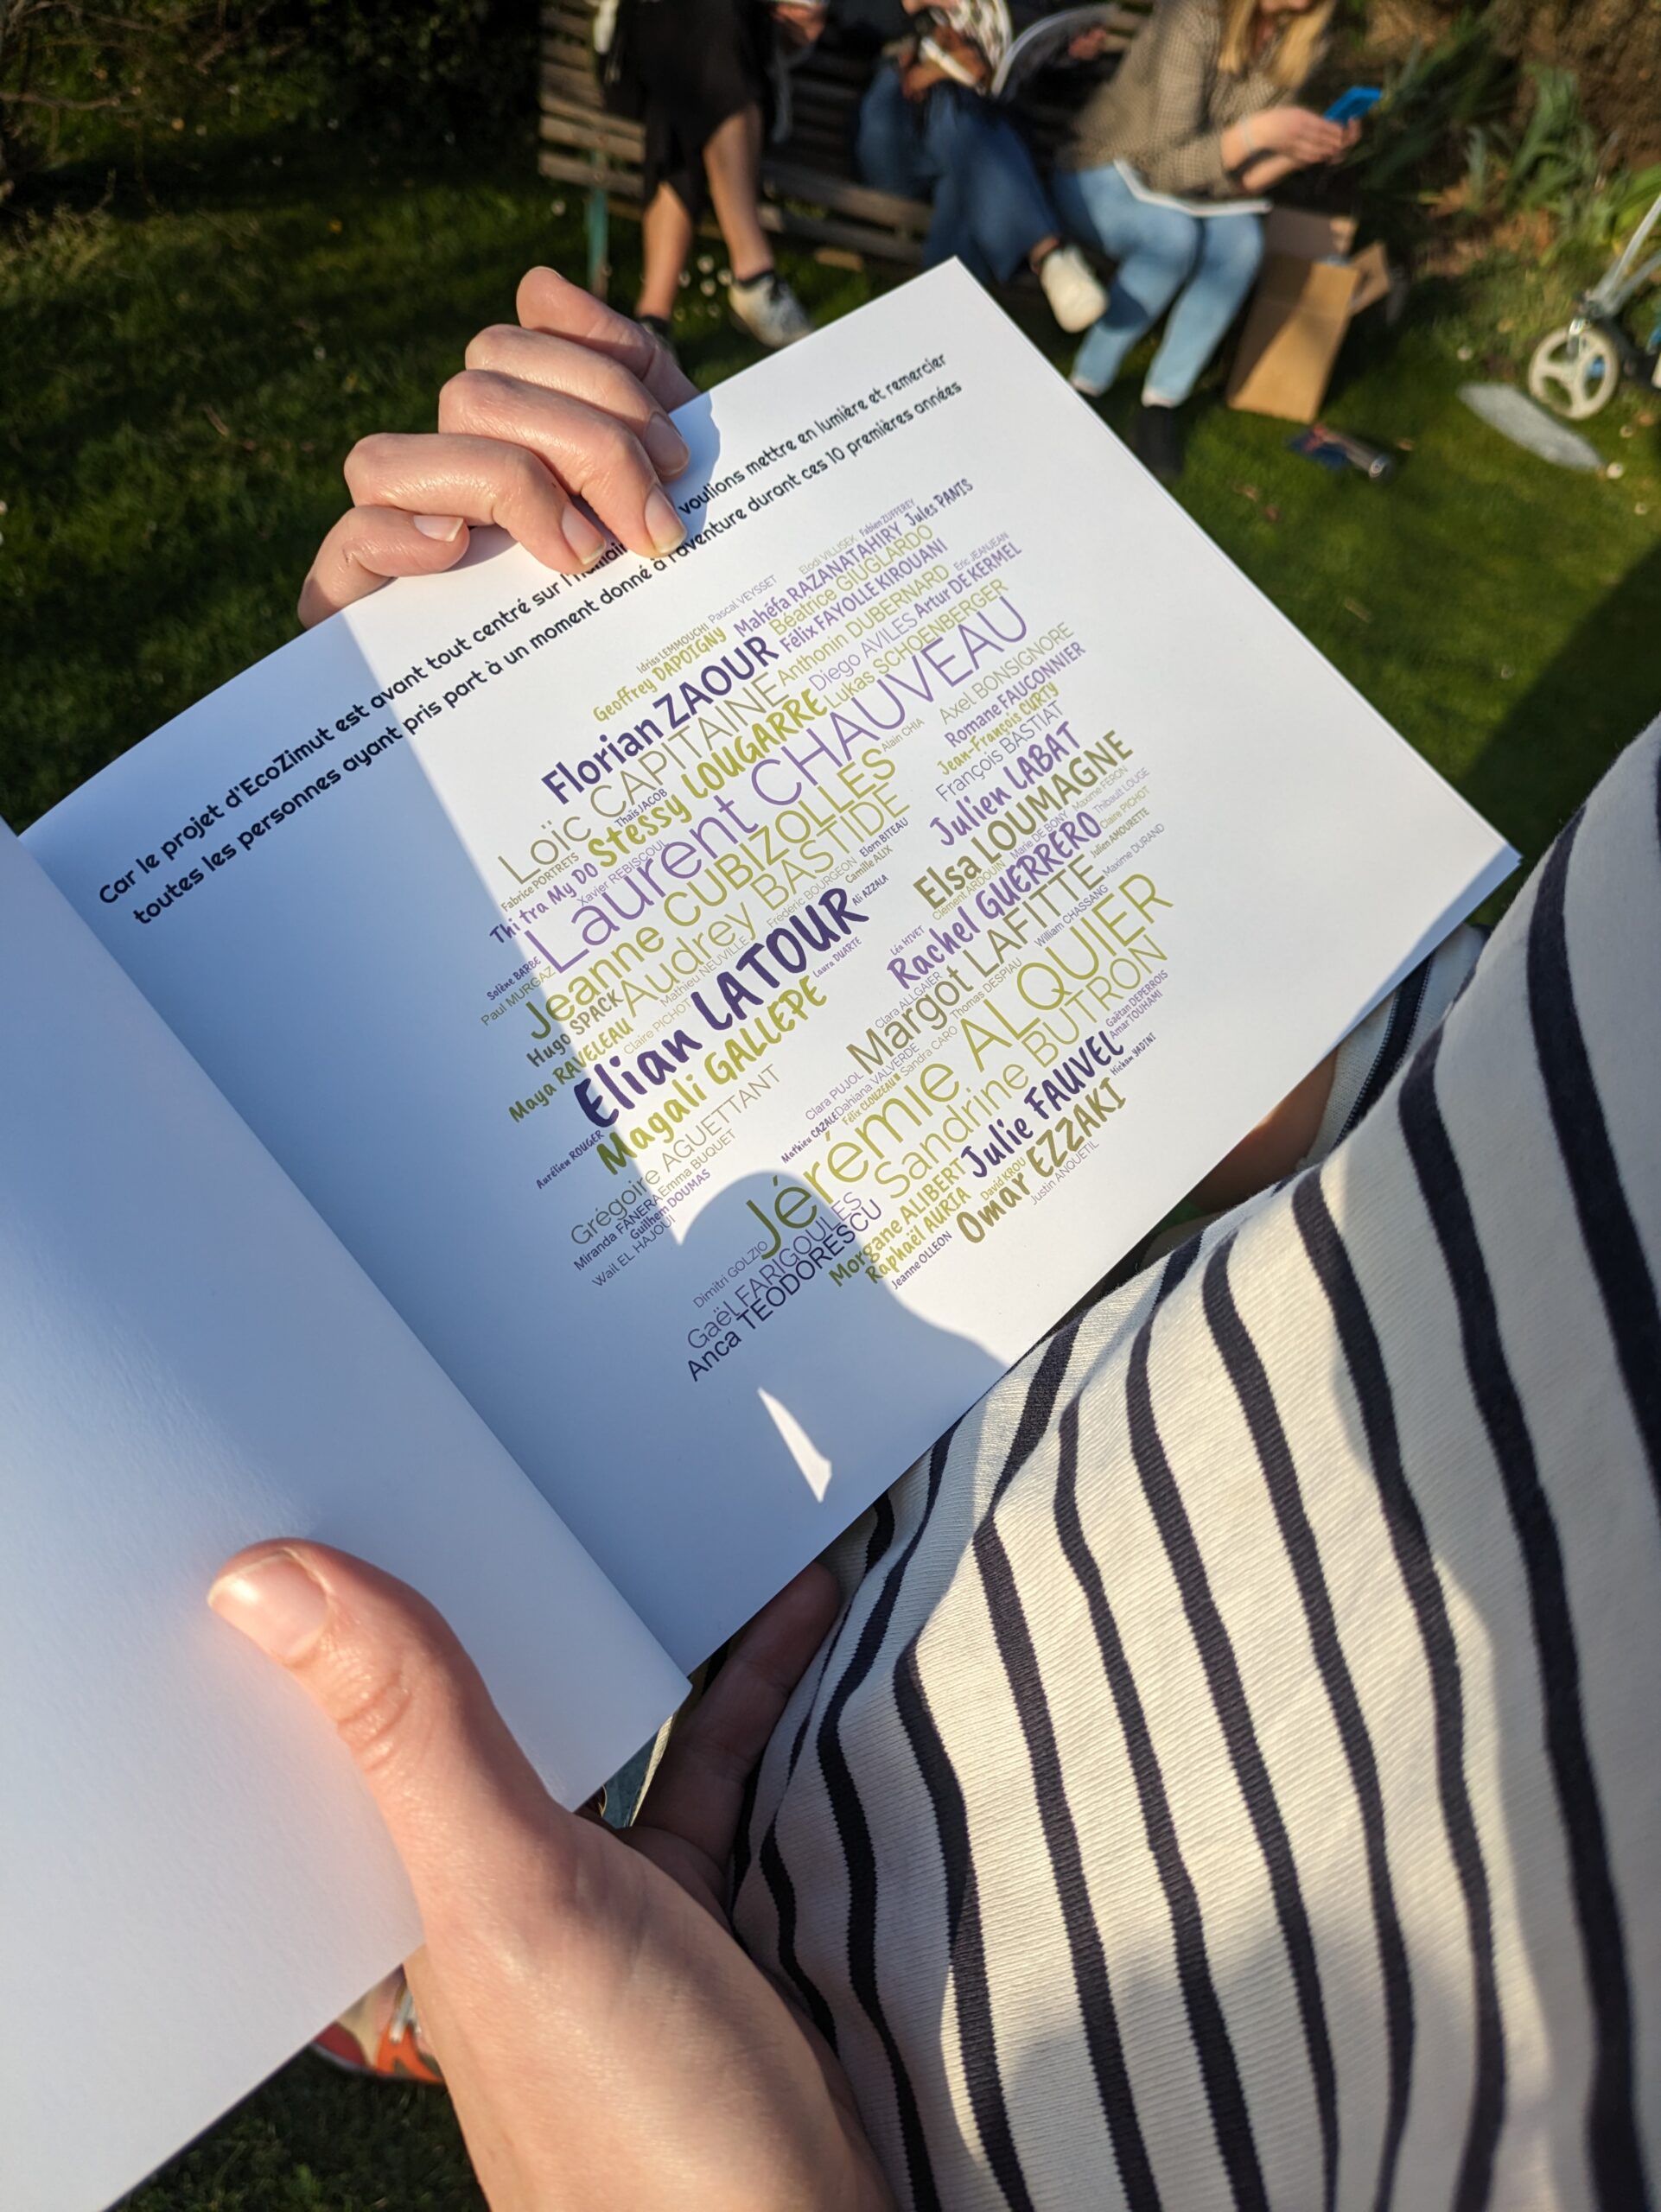 Car le projet d'EcoZimut est avant tout centré sur l'humain voulions mettre en lumière et remercier
toutes les personnes ayant pris part à un moment donné à l'aventure durant ces 10 premières années
Fabien ZUFFEREY
Jules PANIS
Elodi VILLISEK
Mahéfa RAZANATAHIRY
Pascal VEYSSET
Béatrice GIUGLARDO
Idriss LEMMOUCHI
Félix FAYOLLE KIROUANI
Eric JEANJEAN
Geoffrey DAPOIGNY
Anthonin DUBERNARD
Artur DE KERMEL
Florian ZAOUR
Diego AVILES
Lukas SCHOENBERGER
Loïc CAPITAINE
Stessy LOUGARRE
Thaïs JACOB
Laurent CHAUVEAU
Axel BONSIGNORE
Romane FAUCONNIER
Jean-François CURTY
François BASTIAT
Alain CHIA
Fabrice PORTRETS
Thi tra My DO
Xavier REBISCOUL
Jeanne CUBIZOLLES
Julien LABAT
Audrey BASTIDE
Elsa LOUMAGNE
Elorn BITEAU
Camille ALIX
Frédéric BOURGEON
Marie DE BONY
Maxime FERON
Thibault LOUGE
Claire PICHOT
Clément ARDOUIN
Rachel GUERRERO
Julien AMOURETTE
Maxime DURAND
Solène BARBE
Paul MURGAZ
Hugo SPACK
Mathieu NEUVILLE
Ali AZZALA
Claire PICHOT
Elian LATOUR
Laura DUARTE
Léa HIVET
Margot LAFITTE
William CHASSANG
Maya RAVELEAU
Magali GALLEPE
Clara ALLGAIER
Thomas DESPIAU
Sandra CARO
Jérémie ALQUIER
Aurélien ROUGER
Grégoire AGUETTANT
Emma BUQUET
Clara PUJOL
Dahiana VALVERDE
Mathieu CAZALE
Félix CLOUZEAU
Sandrine BUTRON
Gaëtan DEPERROIS
Amar TOUHAMI
Hicham YADINI
Miranda FANERA
Guilhem DOUMAS
Wail EL HAJOUI
Julie FAUVEL
David KROU
Omar EZZAKI
Justin ANQUETIL
Dimitri GOLZIO
Gaël FARIGOULES
Morgane ALIBERT
Raphaël AURIA
Jeanne OLLEON
Anca TEODORESCU